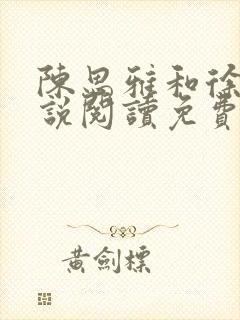 陳思雅和徐
說閱讀免費
黃劍標